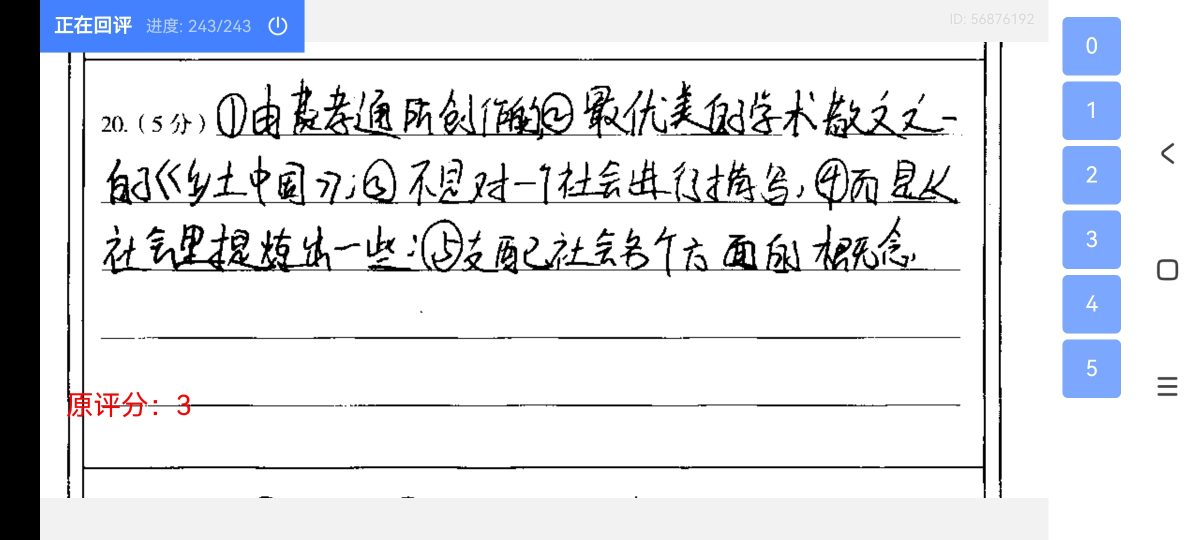 正在回评 进度: 243/243
ID: 56876192
20.(5分)①由费孝通所创作的②最优美的学术散文之一
的《乡土中国》;③不是对一个社会进行描写,④而是从
社会里提炼出一些:⑤支配已社会各个方面的概念,
原评分：3
0
1
2
3
4
5